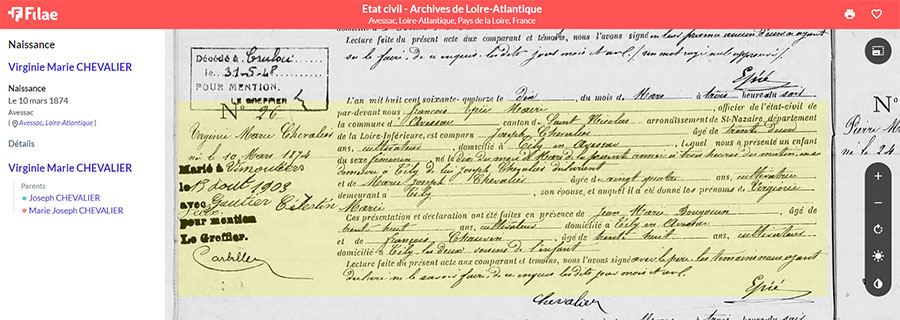 Filae
Etat civil - Archives de Loire-Atlantique
Avessac, Loire-Atlantique, Pays de la Loire, France
Naissance
Virginie Marie CHEVALIER
Naissance
Le 10 mars 1874
Avessac
( Avessac, Loire-Atlantique )
Détails
Virginie Marie CHEVALIER
Parents
Joseph CHEVALIER
Marie Joseph CHEVALIER
Lecture faite du présent acte aux comparant et témoins, nous l'avons signé
Epié
Décédée à Toulon
le 31-5-48
POUR MENTION.
LE GREFFIER
N° 26
Virginie Marie Chevalier
né le 10 Mars 1874
Marié à Vimoutiers
le 13 août 1903
avec Gautier Célestin
pour mention
Le Greffier.
L'an mil huit cent soixante-quatorze le Dix, du mois de Mars à trois heures du soir
par-devant nous François Epié Maire, officier de l'état-civil de
la commune d'Avessac canton de Saint Nicolas arrondissement de St-Nazaire, département
de la Loire-Inférieure, est comparu Joseph Chevalier âgé de trente deux
ans, cultivateur, domicilié à, lequel nous a présenté un enfant
du sexe féminin né le dix du mois de Mars de la présente année à trois heures du matin
et de Marie Joseph Chevalier âgée de vingt quatre ans, cultivateur
demeurant à, son épouse, et auquel il a été donné les prénoms de Virginie
Marie
Ces présentation et déclaration ont été faites en présence de Jean Marie, âgé de
trente huit ans, cultivateur domicilié à en Avessac
et de François Chauvin, âgé de trente huit ans, cultivateur
domicilié à, les deux voisins de l'enfant
Lecture faite du présent acte aux comparant et témoins, nous l'avons signé avec le père, les témoins nous ayant
déclaré ne le savoir faire, de ce enquis
Epié
Chevalier
N°
Pierre M
né le 24